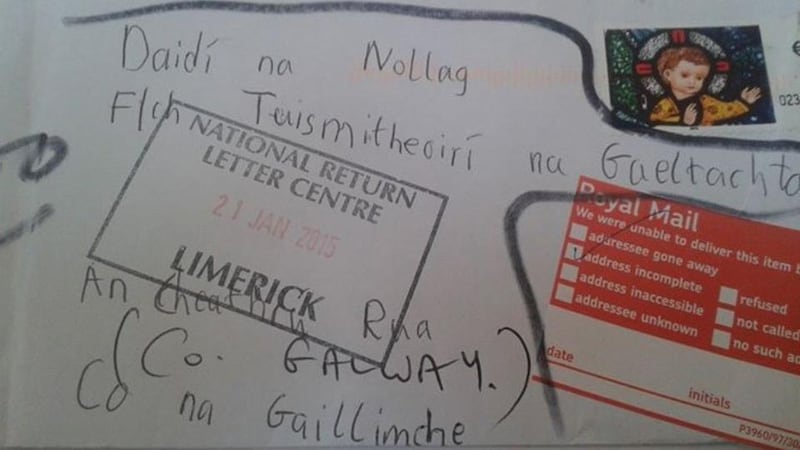 Daidí na Nollag
F/ch Tuismitheoirí na Gaeltachta
NATIONAL RETURN
LETTER CENTRE
21 JAN 2015
LIMERICK
An Cheathrú Rua
(Co. GALWAY.)
Co na Gaillimhe
023
Royal Mail
We were unable to deliver this item b
addressee gone away
address incomplete
address inaccessible
addressee unknown
refused
not called
no such ad
date
initials
P3960/97/30